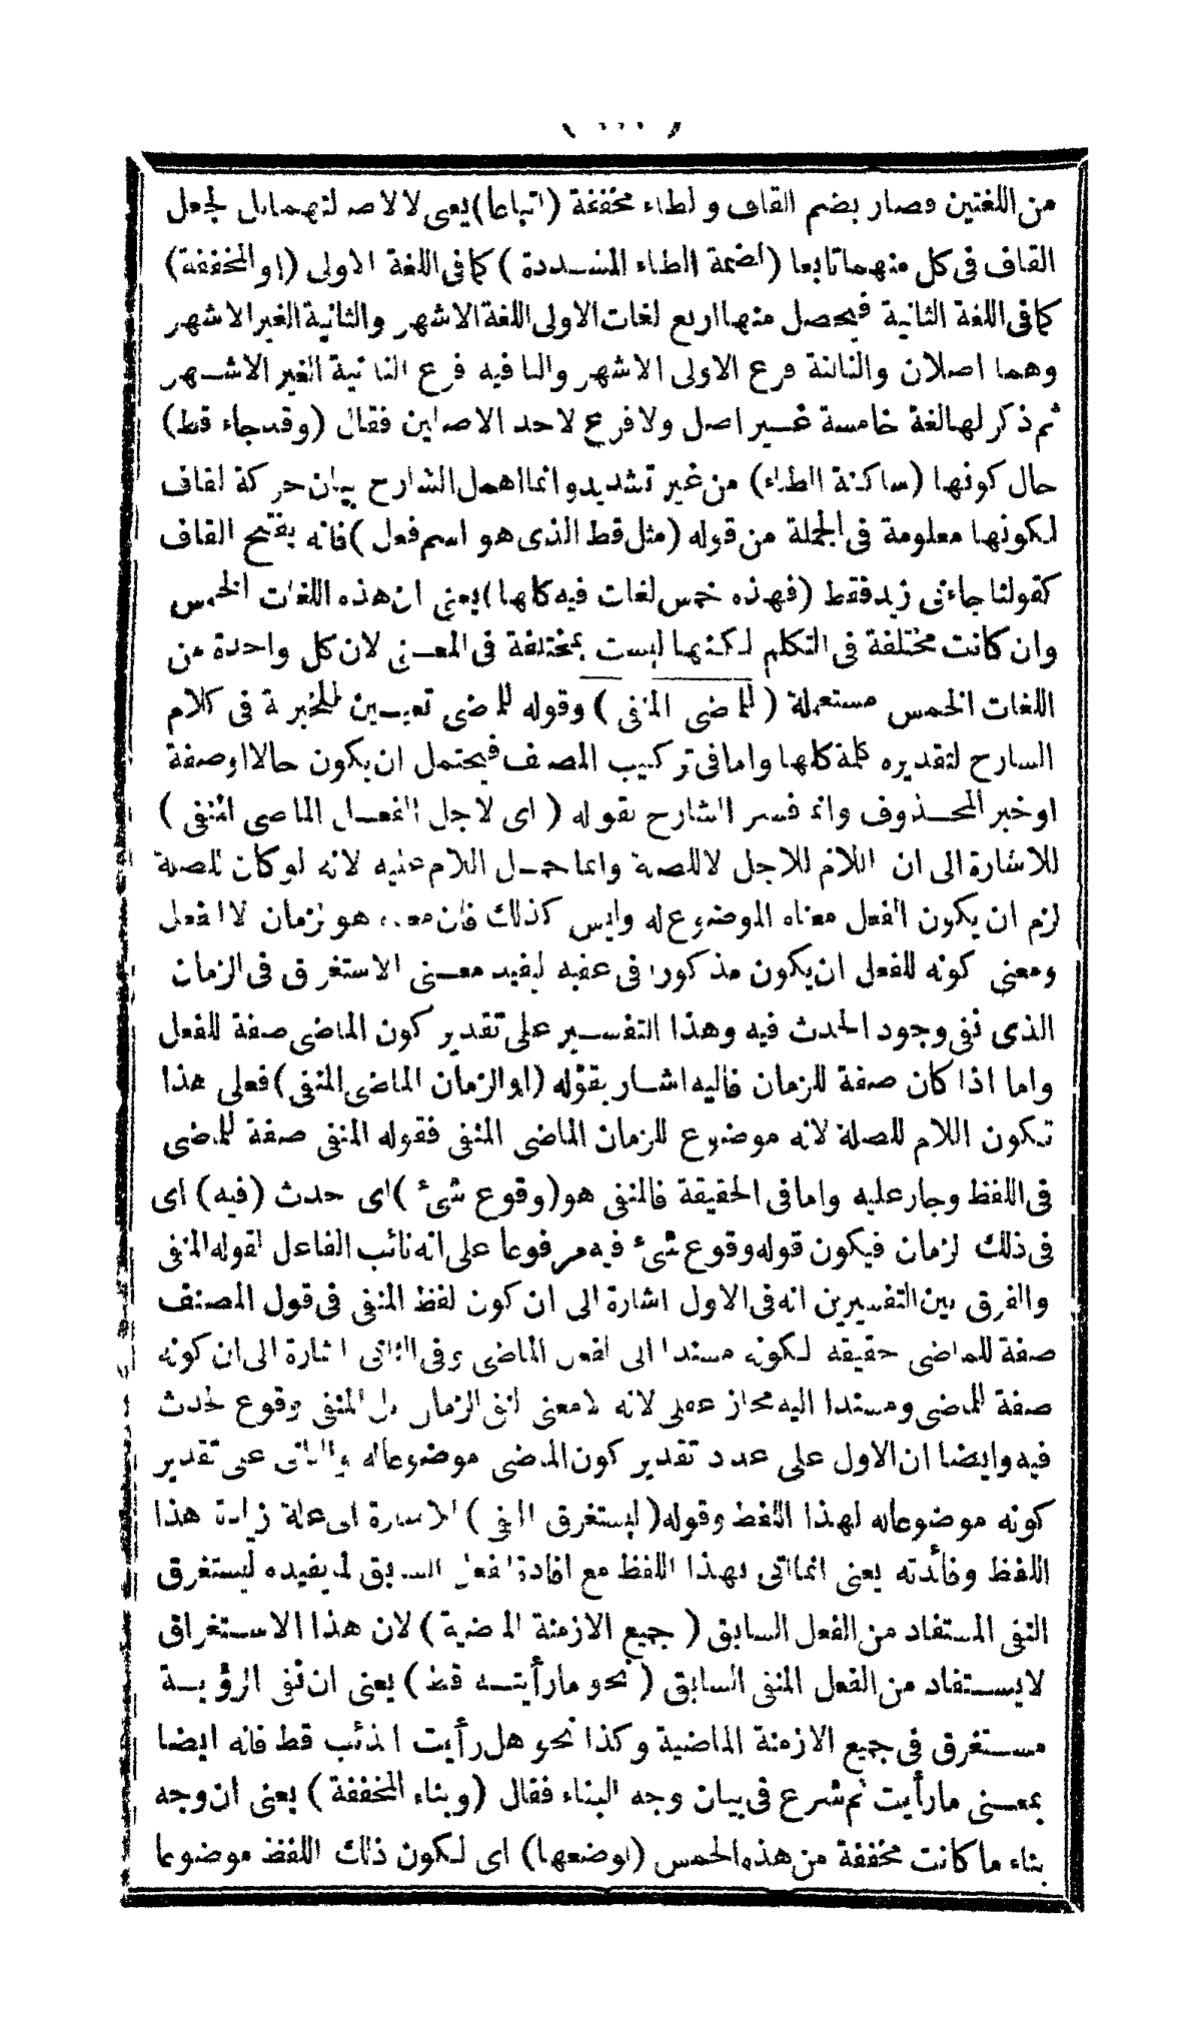 من اللغتين فصار بضم القاف والطاء مخففة (اتباعا) يعنى لا لاصالتهما بل لجعل
القاف فى كل منهما تابعا (لضمة الطاء المشددة) كما فى اللغة الاولى (او المخففة)
كما فى اللغة الثانية فيحصل منها اربع لغات الاولى اللغة الاشهر والثانية الغير الاشهر
وهما اصلان والثالثة فرع الاولى الاشهر والباقية فرع الثانية الغير الاشهر
ثم ذكر لها لغة خامسة غير اصل ولا فرع لاحد الاصلين فقال (وقد جاء قط)
حال كونها (ساكنة الطاء) من غير تشديد وانما اهمل الشارح بيان حركة لقاف
لكونها معلومة فى الجملة من قوله (مثل قط الذى هو اسم فعل) فانه بفتح القاف
كقولنا جاءنى زيد فقط (فهذه خمس لغات فيه كلها) يعنى ان هذه اللغات الخمس
وان كانت مختلفة فى التكلم لكنها ليست بمختلفة فى المعنى لان كل واحدة من
اللغات الخمس مستعملة (للماضى المنفى) وقوله للماضى تعيين للخبرية فى كلام
الشارح لتقديره كلمة كلها واما فى تركيب المصنف فيحتمل ان يكون حالا او صفة
او خبر المحذوف وانما فسر الشارح بقوله (اى لاجل الفعل الماضى المنفى)
للاشارة الى ان اللام للاجل لا للصلة وانما حمل اللام عليه لانه لو كان للصلة
لزم ان يكون الفعل معناه الموضوع له وليس كذلك فان معناه هو لزمان لا الفعل
ومعنى كونه للفعل ان يكون مذكورا فى عقبه ليفيد معنى الاستغرق فى الزمان
الذى نفى وجود الحدث فيه وهذا التفسير على تقدير كون الماضى صفة للفعل
واما اذا كان صفة للزمان فاليه اشار بقوله (او الزمان الماضى المنفى) فعلى هذا
تكون اللام للصلة لانه موضوع للزمان الماضى المنفى فقوله المنفى صفة للماضى
فى اللفظ وجار عليه واما فى الحقيقة فالمنفى هو (وقوع شىء) اى حدث (فيه) اى
فى ذلك لزمان فيكون قوله وقوع شىء فيه مرفوعا على انه نائب الفاعل لقوله المنفى
والفرق بين التفسيرين انه فى الاول اشارة الى ان كون لفظ المنفى فى قول المصنف
صفة للماضى حقيقه لكونه مسندا الى لفعل الماضى وفى الثانى اشارة الى ان كونه
صفة للماضى ومسندا اليه مجاز عقلى لانه لا معنى لنفى الزمان بل المنفى وقوع لحدث
فيه وايضا ان الاول على عدد تقدير كون الماضى موضوعا له والثانى على تقدير
كونه موضوعا له لهذا اللفظ وقوله (ليستغرق النفى) للاشارة الى علة زيادة هذا
اللفظ وفائدته يعنى انما اتى بهذا اللفظ مع افادة لفعل السابق لما يفيده ليستغرق
النفى المستفاد من الفعل السابق (جميع الازمنة الماضية) لان هذا الاستغراق
لا يستفاد من الفعل المنفى السابق (نحو ما رأيته قط) يعنى ان نفى الرؤية
مستغرق فى جميع الازمنة الماضية وكذا نحو هل رأيت الذئب قط فانه ايضا
بمعنى ما رأيت ثم شرع فى بيان وجه البناء فقال (وبناء المخففة) يعنى ان وجه
بناء ما كانت مخففة من هذه الخمس (لوضعها) اى لكون ذلك اللفظ موضوعا